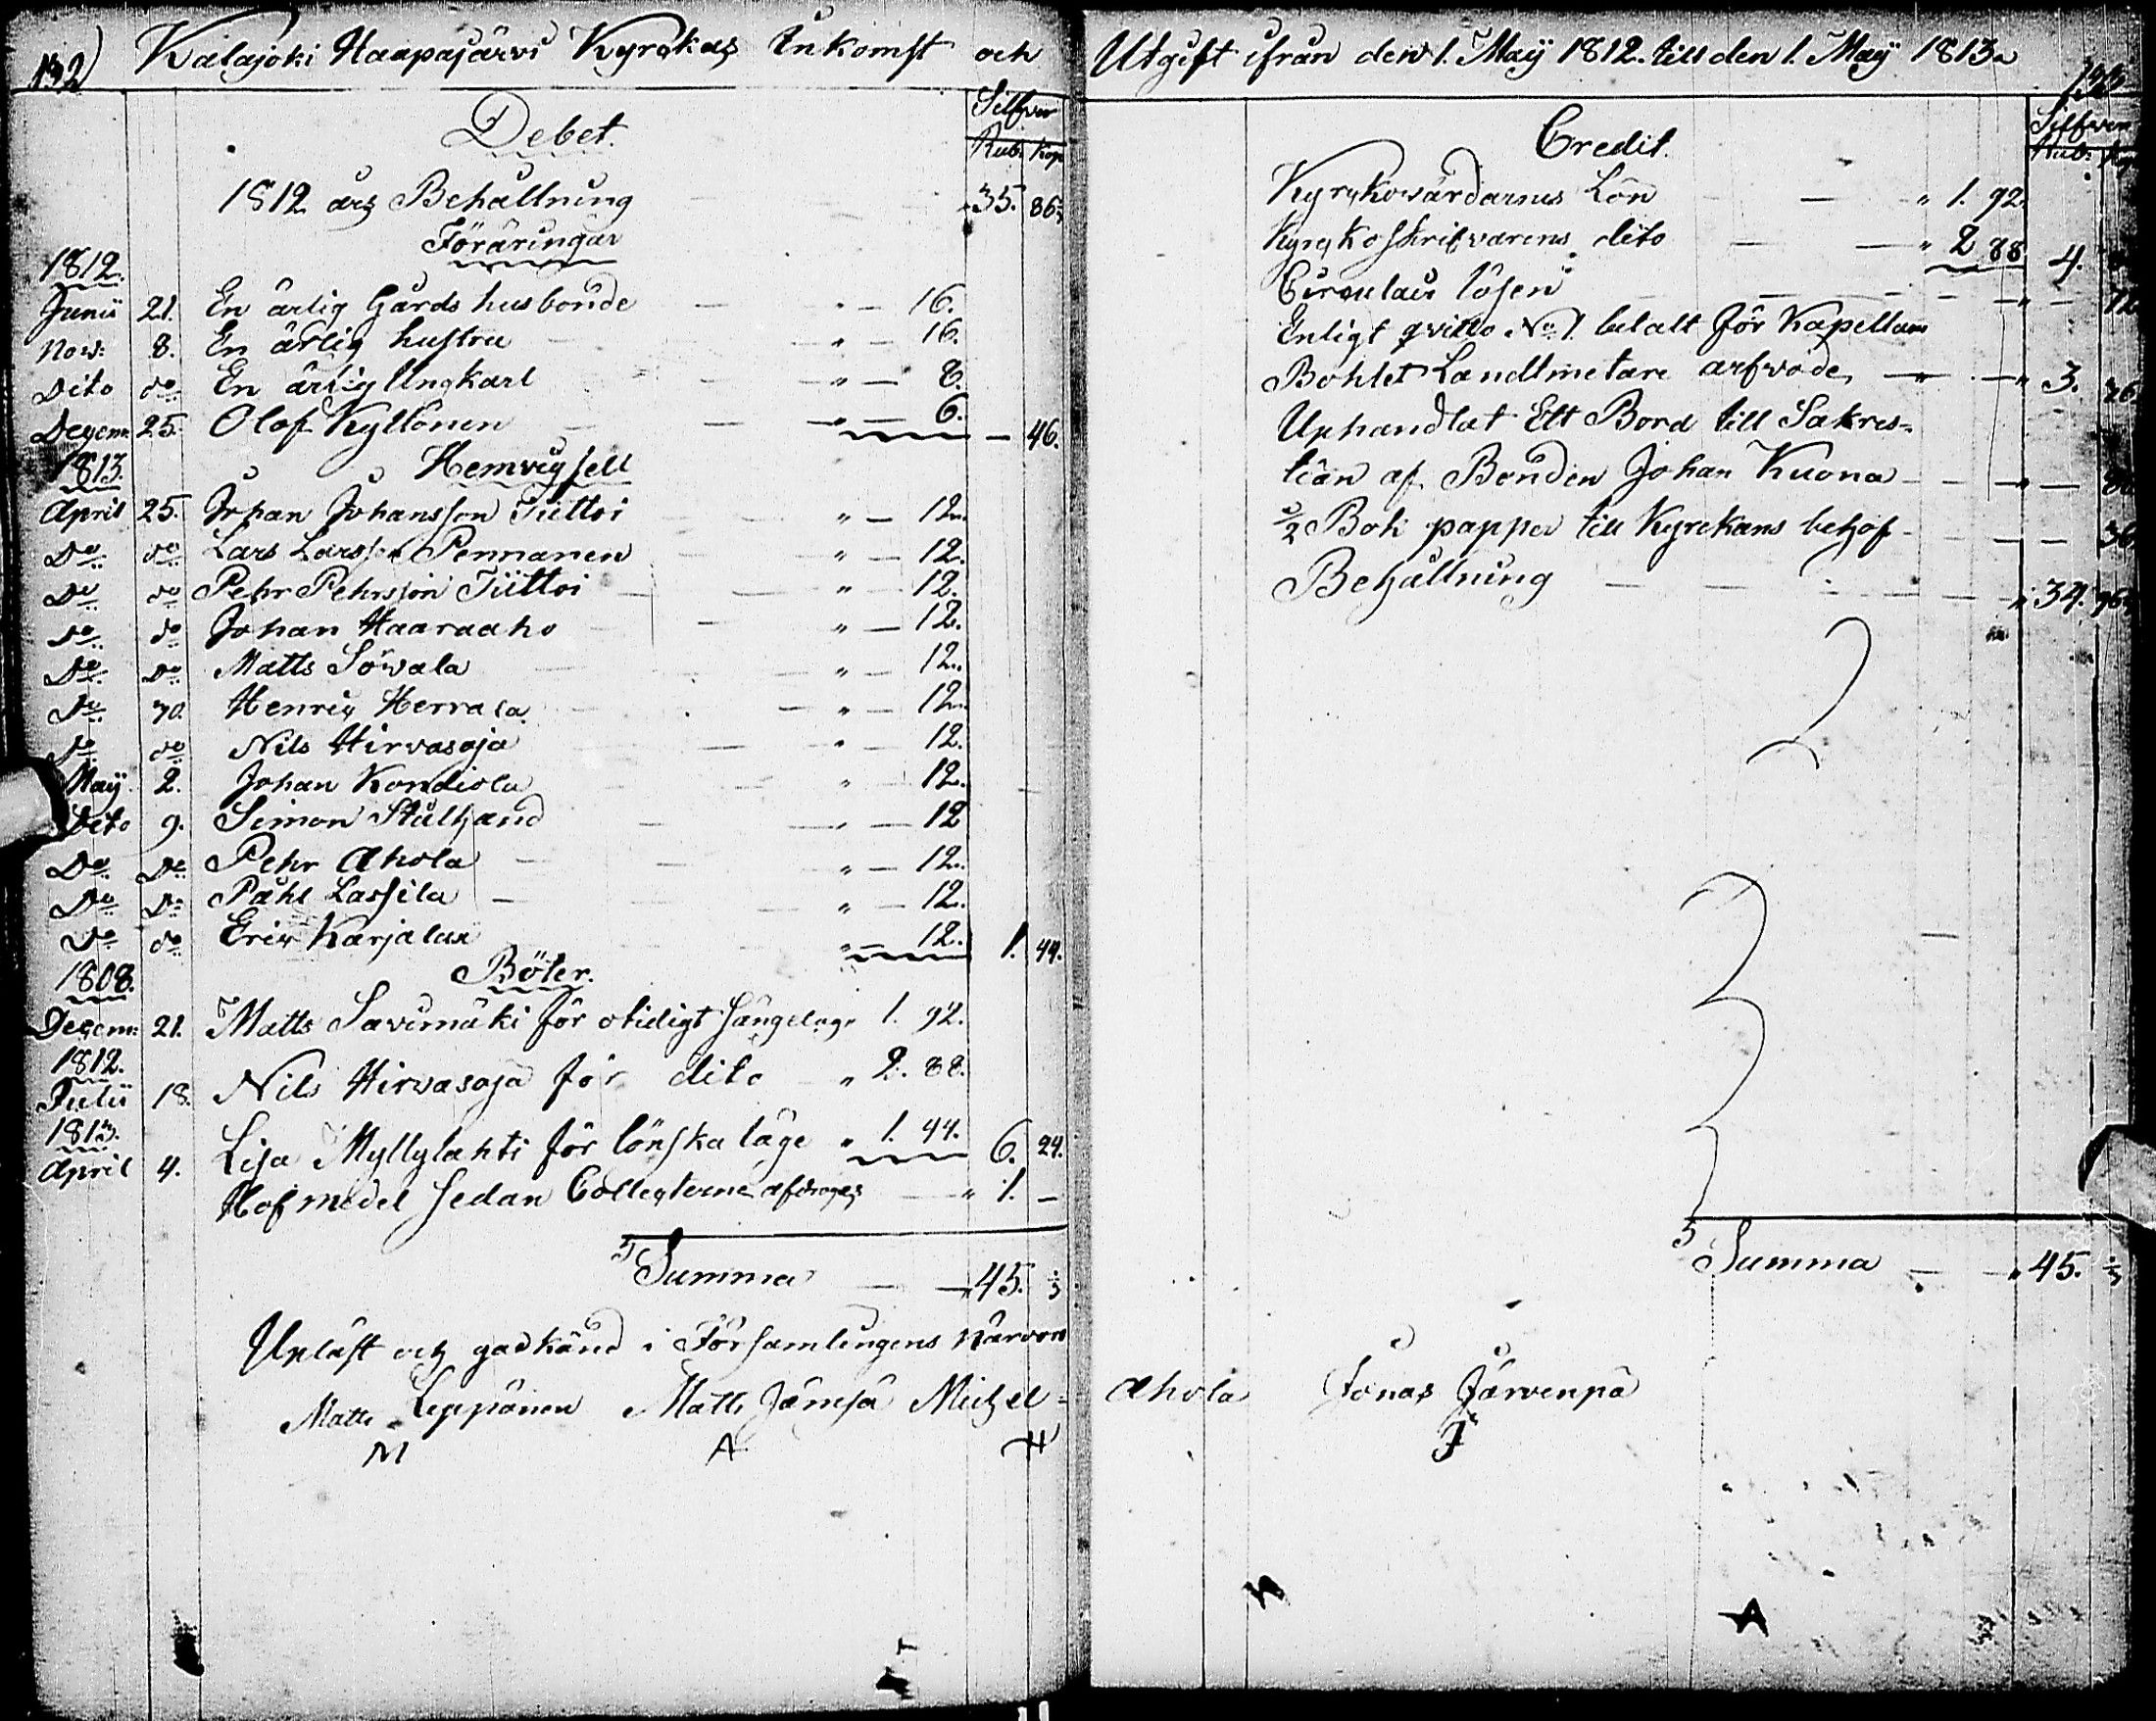 132) Kalajoki Haapajärvi Kyrckas Inkomst och
Debet.
Silfver
Rub: Kop
1812 års Behållning 35. 86
Föräringar
1812.
Junii 21. En ärlig Gårds husbonde " — 16.
Nov: 8. En ärlig hustru " — 16.
Dito do En ärlig Ungkarl " — 8.
Decem: 25. Olof Kyllönen " — 6. — 46.
1813. Hemvigsell
April 25. Johan Johansson Tiittoi " — 12.
Do do Lars Larsson Pennanen " — 12.
Do do Pehr Pehrsson Tiittoi " — 12.
Do do Johan Haaraaho " — 12.
Do Do Matts Sowala " — 12.
Do 30. Henric Herrala " — 12.
Do do Nils Hirvasoja " — 12.
May 2. Johan Kondiola " 12.
Dito 9. Simon Stålhand " — 12
Do Do Pehr Ahola " — 12.
Do Do Påhl Lassila " — 12.
Do do Eric Karjalus " — 12. 1. 44.
1808. Böter.
Decem: 21. Matts Savimäki för otidigt sängelag " 1. 92.
1812.
Julii 18. Nils Hirvasoja för dito " 2. 88.
1813.
April 4. Lisa Myllylahti för lönskaläge " 1. 44. 6. 24.
Hofmedel sedan Collecterne afdrages " 1. —
Summa — 45.
Upläst och godkänd i Församlingens närvaro
Matts Leppänen Matts Jämsä Michel
M A H
Utgift ifrån den 1. May 1812. till den 1. May 1813.
Credit.
Silfver
Rub: Kop
Kyrckowärdarnes Lön — " 1. 92.
Kyrckoskrifvarens dito — " 2 88 4.
Circulair lösen " —
Enligt qvitto No 1. betalt för Kapellans
Bohlet Landtmetare arfvode — " 3. 26
Uphandlat Ett Bord till Sakres=
tian af Bonden Johan Kuona — " — 80
1/2 Bok papper till Kyrckans behof — — 36
Behållning — " 34.
Summa — " 45.
Ahola Jonas Järvenpä
J